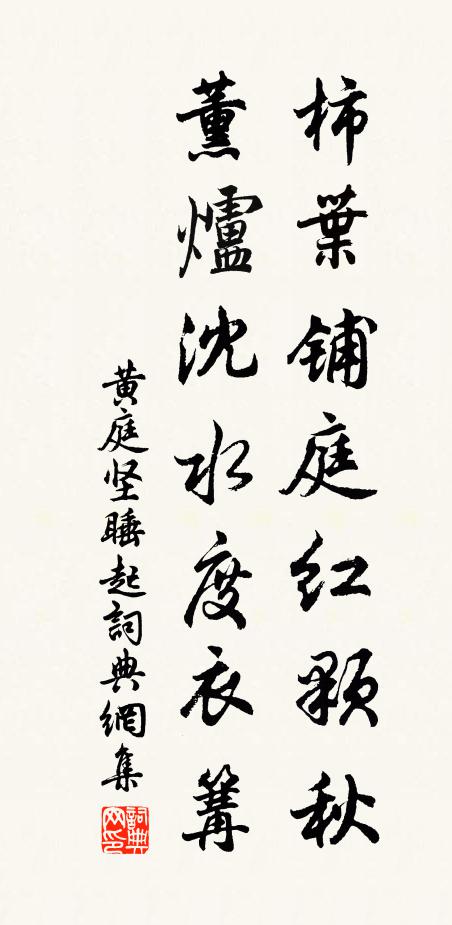 柿葉铺庭红顆秋
薰爐沈水度衣篝
黄庭坚睡起詞典網集
詞典网印